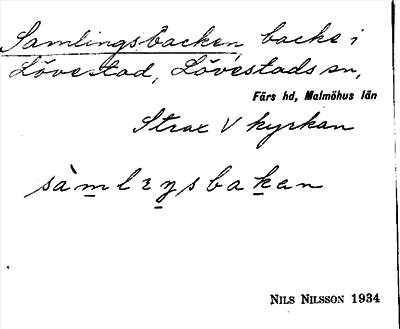 Samlingsbacken, backe i
Lövestad, Lövestads sn,
Färs hd, Malmöhus län
Strax V kyrkan
NILS NILSSON 1934